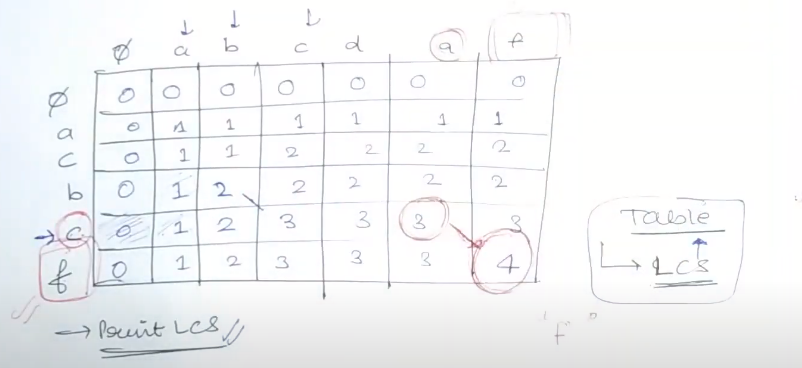 ∅ a b c d a f
∅ 0 0 0 0 0 0 0
a 0 1 1 1 1 1 1
c 0 1 1 2 2 2 2
b 0 1 2 2 2 2 2
→ c 0 1 2 3 3 3 3
f 0 1 2 3 3 3 4
Table
↳ LCS
→ Print LCS //
"f"